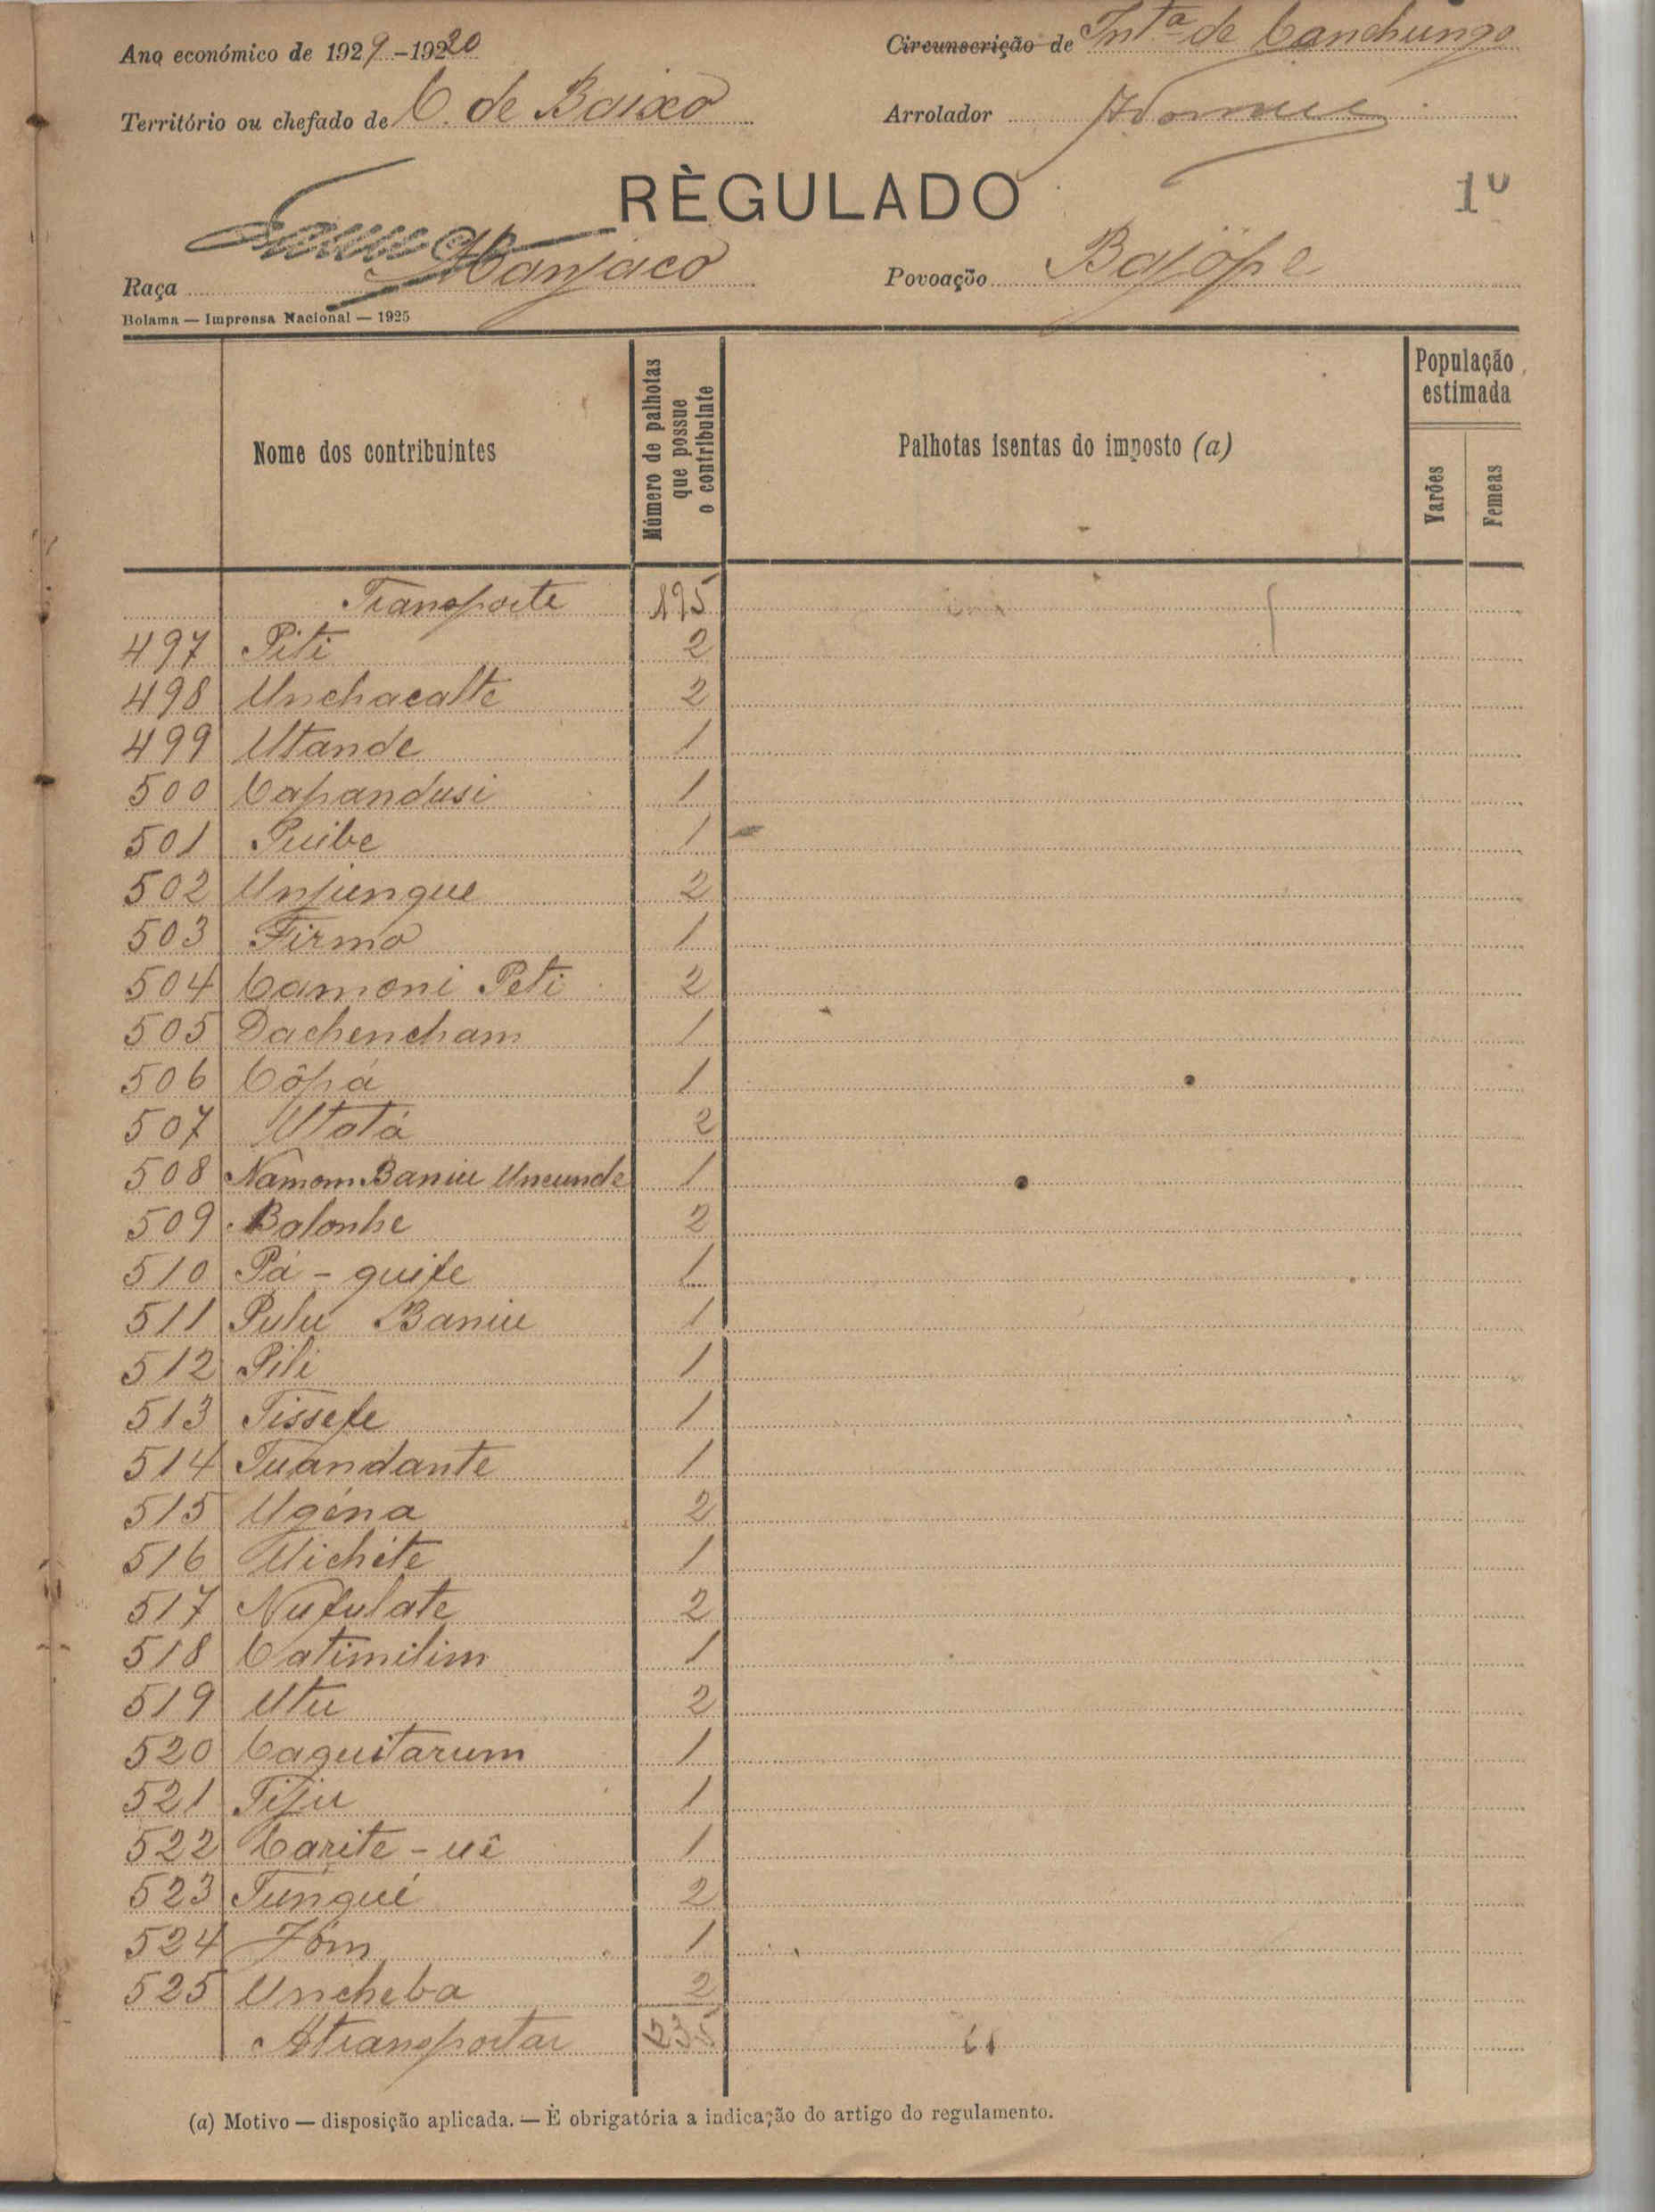 Ano económico de 1929-1930
Circunscrição de Intª de Canchungo
Território ou chefado de C. de Baixo
Arrolador
RÈGULADO
1º
Raça Manjaco
Povoação Bajópe
Bolama — Imprensa Nacional — 1925
Nome dos contribuintes
Número de palhotas que possue o contribuinte
Palhotas isentas do imposto (a)
População estimada
Varões
Femeas
Transporte 195
497 Piti 2
498 Unchacalte 2
499 Utande 1
500 Capandusi 1
501 Puibe 1
502 Unjungue 2
503 Firmo 1
504 Camoni Peti 2
505 Dachencham 1
506 Côpá 1
507 Utatá 2
508 Námom Baniu Uncunde 1
509 Balonhe 2
510 Pá - guife 1
511 Pulu Baniu 1
512 Pili 1
513 Tissefe 1
514 Tuandante 1
515 Ugéna 2
516 Uichite 1
517 Nufulate 2
518 Catimilim 1
519 Utu 2
520 Caguitarum 1
521 Tiju 1
522 Carite - uê 1
523 Tungué 2
524 Jóm 1
525 Uncheba 2
A transportar 235
(a) Motivo — disposição aplicada. — É obrigatória a indicação do artigo do regulamento.